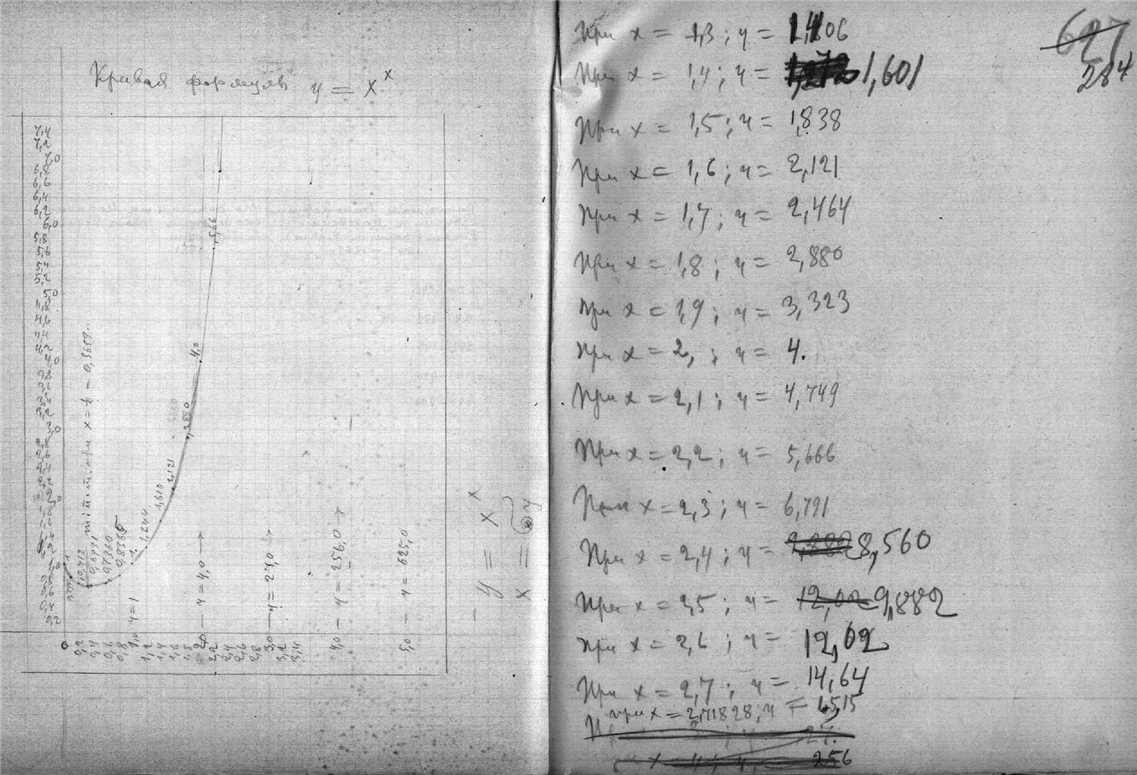 Кривая формулы y = x^x
7,4
7,2
7,0
6,8
6,6
6,4
6,2
6,0
5,8
5,6
5,4
5,2
5,0
4,8
4,6
4,4
4,2
4,0
3,0
2,8
2,6
2,4
2,2
2,0
1,8
1,6
1,4
1,2
1,0
0,8
0,6
0,4
0,2
minimum x =
4,0
2,880
2,121
1,244
y = 1
0
0,2
0,4
0,6
0,8
1,0
1,2
1,4
1,6
1,8
2,0 – y = 4,0 →
2,2
2,4
2,6
2,8
3,0 – y = 27,0 →
3,2
3,4
4,0 – y = 256,0 →
5,0 – y = 625,0
– y = x^x
627
284
При x = 1,3; y = 1,406
При x = 1,4; y = 1,601
При x = 1,5; y = 1,838
При x = 1,6; y = 2,121
При x = 1,7; y = 2,464
При x = 1,8; y = 2,880
При x = 1,9; y = 3,323
При x = 2,; y = 4.
При x = 2,1; y = 4,749
При x = 2,2; y = 5,666
При x = 2,3; y = 6,791
При x = 2,4; y = 8,560
При x = 2,5; y = 12,02 9,882
При x = 2,6; y = 12,02
При x = 2,7; y = 14,64
при x = 2,71828; y = 15,15
256